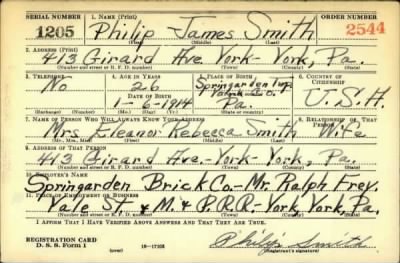 SERIAL NUMBER 1. NAME (Print) ORDER NUMBER
1205 Philip James Smith 2544
(First) (Middle) (Last)
2. ADDRESS (Print)
413 Girard Ave York-York, Pa.
(Number and street or R. F. D. number) (Town) (County) (State)
3. TELEPHONE 4. AGE IN YEARS 5. PLACE OF BIRTH 6. COUNTRY OF CITIZENSHIP
No 26 Springarden Twp.
York Co.
DATE OF BIRTH
1-6-1914 Pa. U.S.A.
(Exchange) (Number) (Mo.) (Day) (Yr.) (State or country)
7. NAME OF PERSON WHO WILL ALWAYS KNOW YOUR ADDRESS 8. RELATIONSHIP OF THAT PERSON
Mrs Eleanor Rebecca Smith Wife
(Mr., Mrs., Miss) (First) (Middle) (Last)
9. ADDRESS OF THAT PERSON
413 Girard Ave.-York-York, Pa.
(Number and street or R. F. D. number) (Town) (County) (State)
10. EMPLOYER'S NAME
Springarden Brick Co-Mr. Ralph Frey.
11. PLACE OF EMPLOYMENT OR BUSINESS
Vale St & M. & P.R.R-York York, Pa.
(Number and street or R. F. D. number) (Town) (County) (State)
I AFFIRM THAT I HAVE VERIFIED ABOVE ANSWERS AND THAT THEY ARE TRUE.
REGISTRATION CARD
D. S. S. Form 1 (over) 16-17105 Philip Smith
(Registrant's signature)